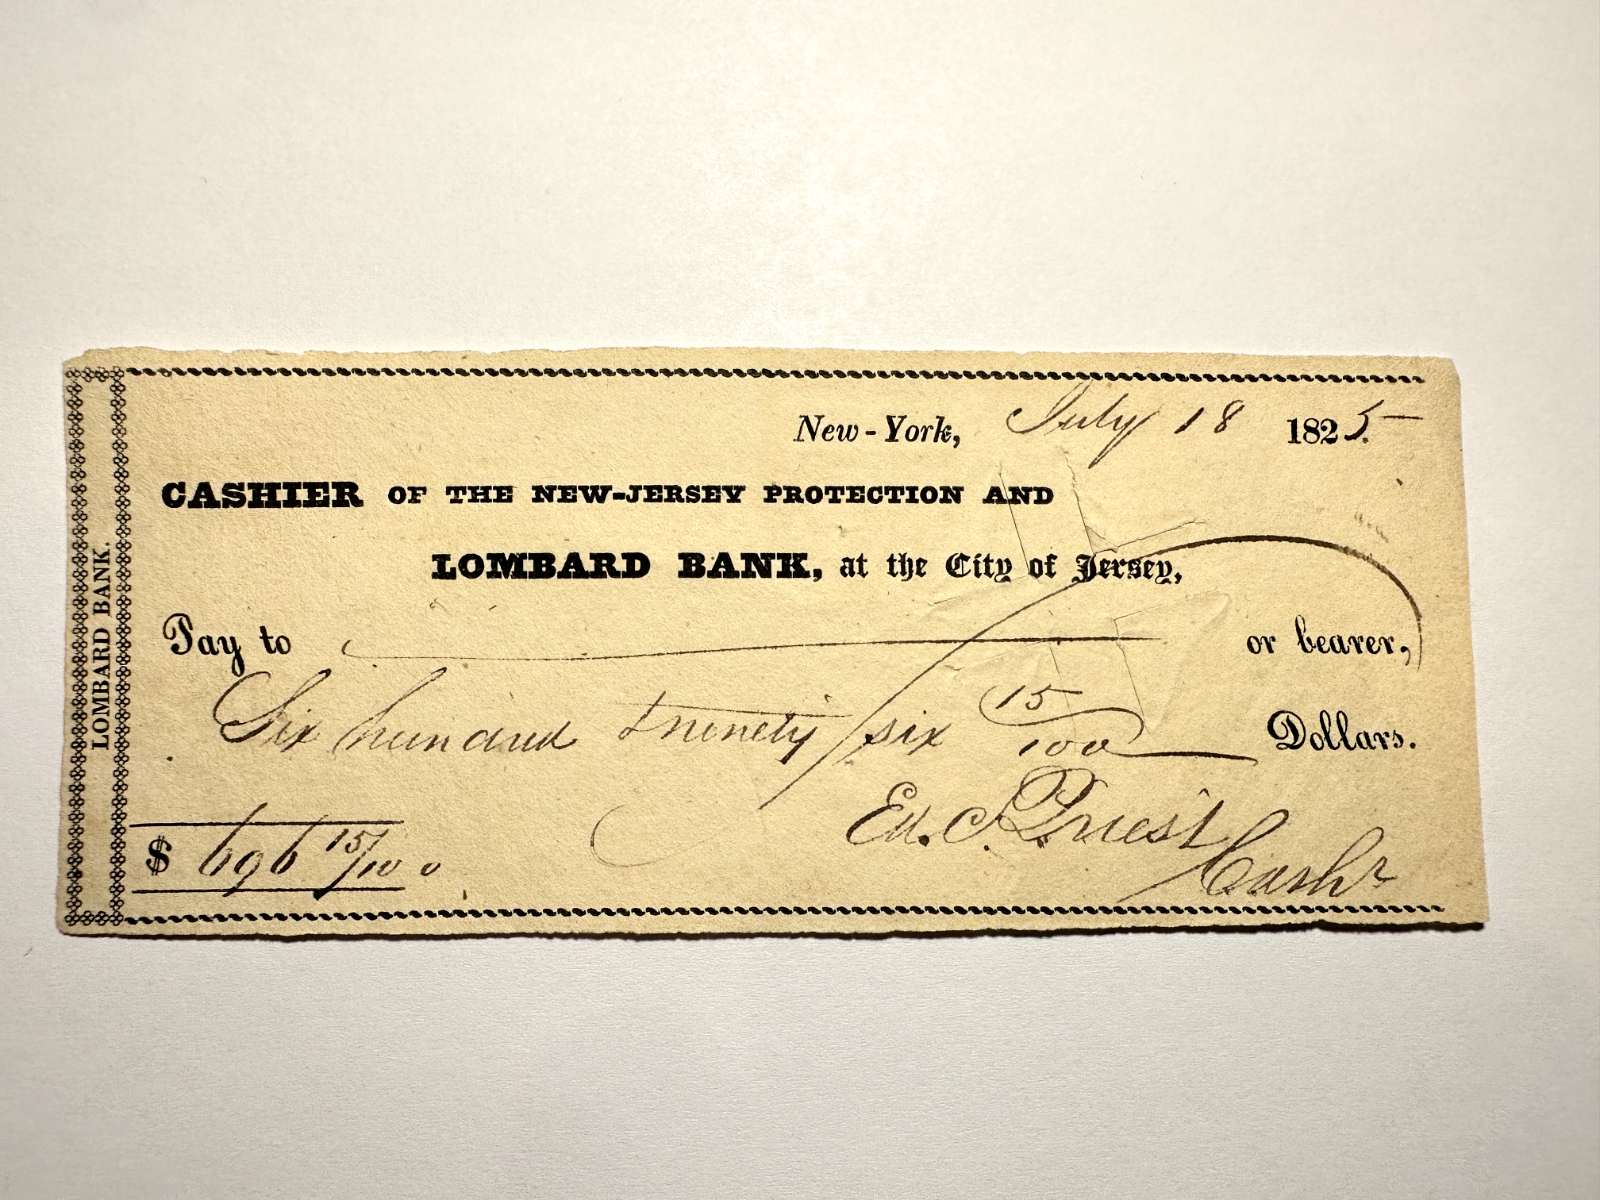 LOMBARD BANK.
New-York, July 18 1825.
CASHIER OF THE NEW-JERSEY PROTECTION AND
LOMBARD BANK, at the City of Jersey,
Pay to or bearer,
Six hundred & ninety six 15/100 Dollars.
Ed. C. Priest
Cashr
$ 696 15/100